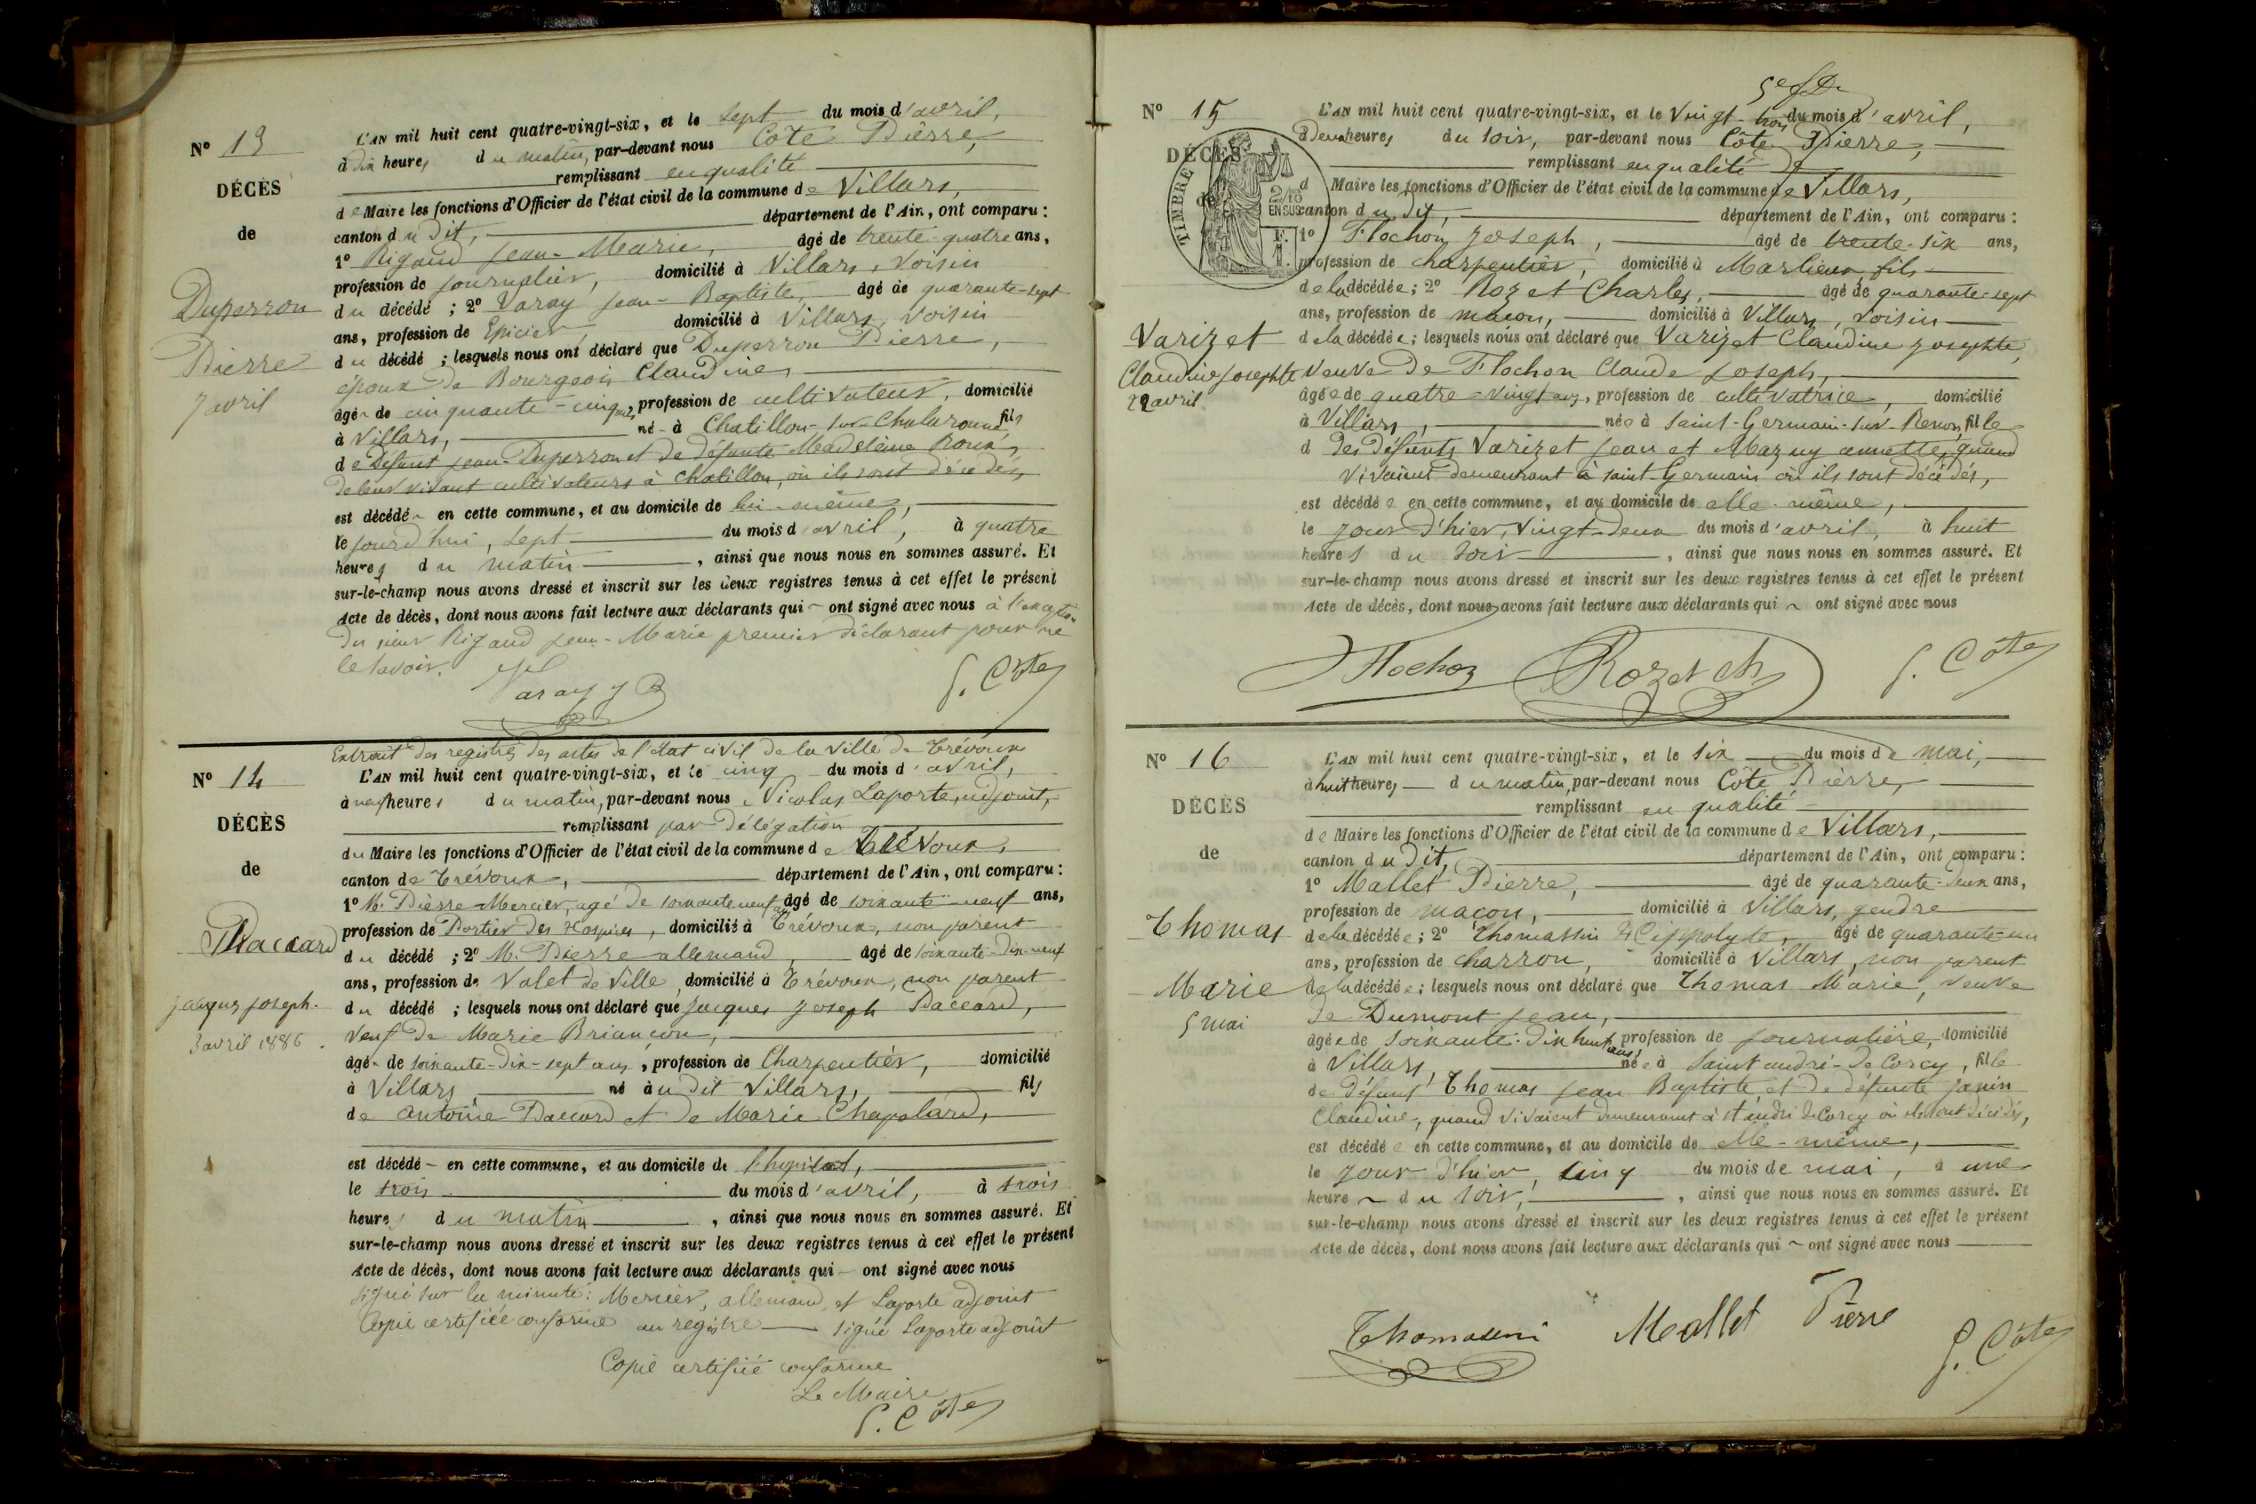 N° 13
DÉCÈS
de
Duperron
Pierre
7 avril
L'AN mil huit cent quatre-vingt-six, et le sept du mois d'avril,
à dix heures du matin, par-devant nous Côte Pierre,
remplissant en qualité
de Maire les fonctions d'Officier de l'état civil de la commune de Villars,
canton du dit, département de l'Ain, ont comparu :
1° Rigaud Jean-Marie, âgé de trente-quatre ans,
profession de journalier, domicilié à Villars, voisin
du décédé ; 2° Varay Jean-Baptiste, âgé de quarante-sept
ans, profession de Epicier, domicilié à Villars, voisin
du décédé ; lesquels nous ont déclaré que Duperron Pierre,
époux de Bourgeois Claudine,
âgé de cinquante-cinq ans, profession de cultivateur, domicilié
à Villars, né à Chatillon-sur-Chalaronne, fils
de Défunt Jean Duperron et de défunte Madeleine Roux,
de leur vivant cultivateurs à Chatillon, où ils sont décédés,
est décédé en cette commune, et au domicile de lui-même,
le jourd'hui, sept du mois d'avril, à quatre
heures du matin, ainsi que nous nous en sommes assuré. Et
sur-le-champ nous avons dressé et inscrit sur les deux registres tenus à cet effet le présent
Acte de décès, dont nous avons fait lecture aux déclarants qui ont signé avec nous à l'exception
du sieur Rigaud Jean-Marie premier déclarant pour ne
le savoir.
Varay J B P. Côte
N° 14
DÉCÈS
de
Paccard
Jacques Joseph.
3 avril 1886.
Extrait des registres des actes de l'état civil de la Ville de Trévoux
L'AN mil huit cent quatre-vingt-six, et le cinq du mois d'avril,
à neuf heures du matin, par-devant nous Nicolas Laporte, adjoint,
remplissant par délégation
du Maire les fonctions d'Officier de l'état civil de la commune de Trévoux,
canton de Trévoux, département de l'Ain, ont comparu :
1° M. Pierre Mercier, agé de soixante neuf ans âgé de soixante-neuf ans,
profession de Portier des Hospices, domicilié à Trévoux, non parent
du décédé ; 2° M. Pierre allemand, âgé de soixante-dix-neuf
ans, profession de Valet de Ville, domicilié à Trévoux, non parent
du décédé ; lesquels nous ont déclaré que Jacques Joseph Paccard,
veuf de Marie Briançon,
âgé de soixante-dix-sept ans, profession de Charpentier, domicilié
à Villars né au dit Villars, fils
de Antoine Paccard et de Marie Chapolard,
est décédé en cette commune, et au domicile de l'hôpital,
le trois du mois d'avril, à trois
heures du matin, ainsi que nous nous en sommes assuré. Et
sur-le-champ nous avons dressé et inscrit sur les deux registres tenus à cet effet le présent
Acte de décès, dont nous avons fait lecture aux déclarants qui ont signé avec nous
signé sur la minute : Mercier, allemand, et Laporte adjoint
Copie certifiée conforme au registre signé Laporte adjoint
Copie certifiée conforme
Le Maire
P. Côte
N° 15
DÉCÈS
de
TIMBRE
2/10
EN SUS
Varizet
Claudine Josephte
22 avril
L'AN mil huit cent quatre-vingt-six, et le vingt-trois du mois d'avril,
à Deux heures du soir, par-devant nous Côte Pierre,
remplissant en qualité de
d Maire les fonctions d'Officier de l'état civil de la commune de Villars,
canton du dit, département de l'Ain, ont comparu :
1° Flochon Joseph, âgé de trente-six ans,
profession de charpentier, domicilié à Marlieux, fils
de la décédée ; 2° Rozet Charles, âgé de quarante-sept
ans, profession de maçon, domicilié à Villars, voisin
de la décédée ; lesquels nous ont déclaré que Varizet Claudine Josephte,
Veuve de Flochon Claude Joseph,
âgée de quatre-vingt ans, profession de cultivatrice, domicilié
à Villars, née à Saint-Germain-sur-Renon, fille
d des défunts Varizet Jean et Mazuy annette, quand
vivaient demeurant à saint Germain où ils sont décédés,
est décédée en cette commune, et au domicile de elle-même,
le jour d'hier, vingt-deux du mois d'avril, à huit
heures du soir, ainsi que nous nous en sommes assuré. Et
sur-le-champ nous avons dressé et inscrit sur les deux registres tenus à cet effet le présent
Acte de décès, dont nous avons fait lecture aux déclarants qui ont signé avec nous
Flochon Rozet ch P. Côte
N° 16
DÉCÈS
de
Thomas
Marie
5 mai
L'AN mil huit cent quatre-vingt-six, et le six du mois de mai,
à huit heures du matin, par-devant nous Côte Pierre,
remplissant en qualité
de Maire les fonctions d'Officier de l'état civil de la commune de Villars,
canton du dit, département de l'Ain, ont comparu :
1° Mallet Pierre, âgé de quarante-deux ans,
profession de maçon, domicilié à Villars, gendre
de la décédée ; 2° Thomassin Hippolyte, âgé de quarante-un
ans, profession de charron, domicilié à Villars, non parent
de la décédée ; lesquels nous ont déclaré que Thomas Marie, veuve
de Dumont Jean,
âgée de soixante-dix huit ans, profession de journalière, domicilié
à Villars, née à Saint andré-de Corcy, fille
de défunt Thomas Jean Baptiste et de défunte Janin
Claudine, quand vivaient demeurant à St andré de Corcy où ils sont décédés,
est décédée en cette commune, et au domicile de elle-même,
le jour d'hier, cinq du mois de mai, à une
heure du soir, ainsi que nous nous en sommes assuré. Et
sur-le-champ nous avons dressé et inscrit sur les deux registres tenus à cet effet le présent
Acte de décès, dont nous avons fait lecture aux déclarants qui ont signé avec nous
Thomassin Mallet Pierre P. Côte